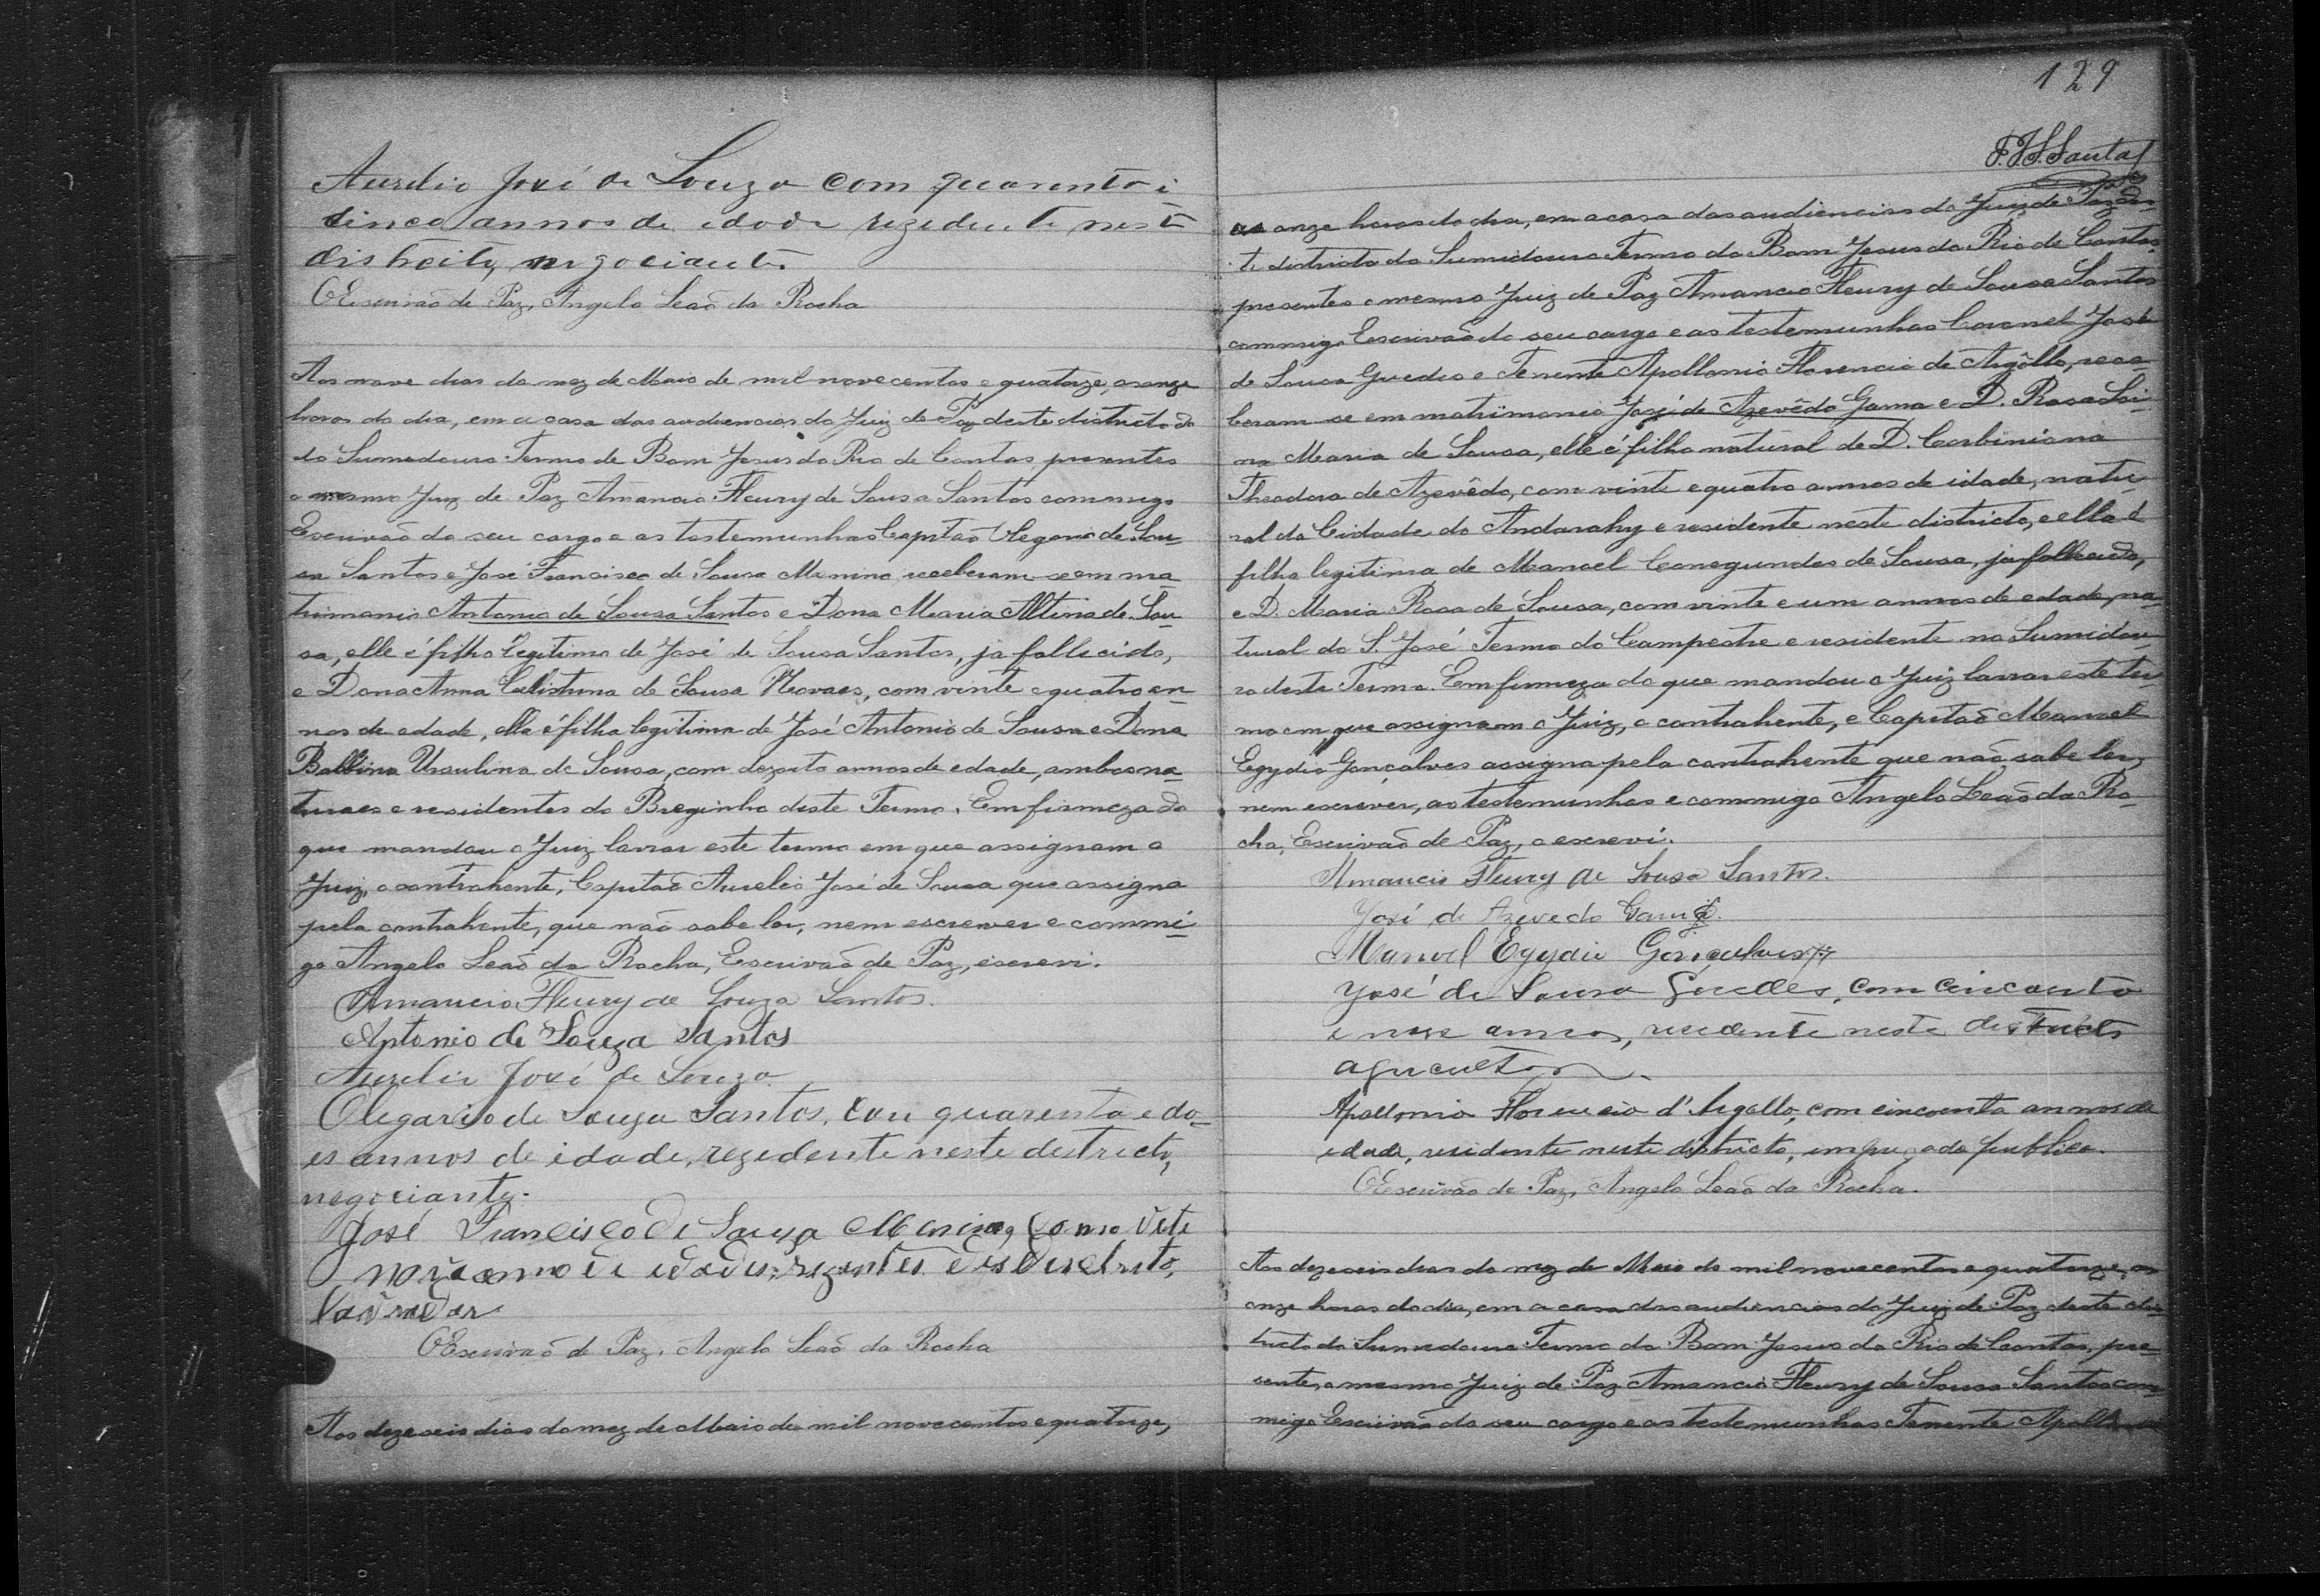 Aurelio José de Souza com quarenta i
cinco annos de idade rezedente neste
districito, negociante.
O Escrivão de Paz, Angelo Leão da Rocha
Aos nove dias do mez de Maio de mil nove centos e quatorze, as onze
horas do dia, em a casa das audiencias do Juiz de Paz deste districto do
do Sumidouro Termo de Bom Jesus do Rio de Contas, presentes
o mesmo Juiz de Paz Amancio Fleury de Sousa Santos commigo
Escrivão do seu cargo e as testemunhas Capitão Olegario de Sou-
sa Santos e José Francisco de Sousa Menino receberam-se em ma-
trimonio Antonio de Sousa Santos e Dona Maria Altina de Sou-
sa, elle é filho legitimo de José de Sousa Santos, já fallecido,
e Dona Anna Celistrina de Sousa Novaes, com vinte e quatro an-
nos de edade, ella é filha legitima de José Antonio de Sousa e Dona
Balbina Ursulina de Sousa, com dezoito annos de edade, ambos na-
turaes e residentes do Breginho deste Termo. Em firmeza do
que mandou o Juiz lavrar este termo em que assignam o
Juiz, o contrahente, Capitão Aurelio José de Sousa que assigna
pela contrahente, que não sabe ler, nem escrever e commi-
go Angelo Leão da Rocha, Escrivão de Paz, escrevi.
Amancio Fleury de Souza Santos.
Antonio de Souza Santos
Aurelio José de Souza
Olegario de Souza Santos, com quarenta e do-
es annos de idade, rezedente neste destricto,
negociante.
José Francisco de Souza Menino,
Lavrador
O Escrivão de Paz, Angelo Leão da Rocha
Aos dezeseis dias do mez de Maio de mil nove centos e quatorze,
129
F. S. Santos
as onze horas do dia, em a casa das audiencias do Juiz de Paz des-
te districto do Sumidouro Termo do Bom Jesus do Rio de Contas,
presentes o mesmo Juiz de Paz Amancio Fleury de Sousa Santos
commigo Escrivão do seu cargo e as testemunhas Coronel José
de Sousa Guedes e Tenente Apollonio Florencio de Argôllo, rece-
beram-se em matrimonio José de Azevêdo Gama e D. Rosa Li-
na Maria de Sousa, elle é filho natural de D. Corbiniana
Theodora de Azevêdo, com vinte e quatro annos de idade, natu-
ral da Cidade do Andarahy e residente neste districto, e ella é
filha legitima de Manoel Conegundes de Sousa, já fallecido,
e D. Maria Rosa de Sousa, com vinte e um annos de edade, na-
tural do S. José Termo do Campestre e residente no Sumidou-
ro deste Termo. Em firmeza do que mandou o Juiz lavrar este ter-
mo em que assignam o Juiz, o contrahente, e Capitão Manoel
Egydio Gonçalves assigna pela contrahente que não sabe ler,
nem escrever, as testemunhas e commigo Angelo Leão da Ro-
cha, Escrivão de Paz, o escrevi.
Amancio Fleury de Sousa Santos.
José de Azevedo Gama.
Manoel Egydio Gonçalves
José de Sousa Guedes, com cincoenta
e nove annos, residente neste destricto
agricultor.
Apollonio Florencio d'Argollo, com cincoenta annos de
edade, residente neste districto, empregado publico.
O Escrivão de Paz, Angelo Leão da Rocha.
Aos dezeseis dias do mez de Maio de mil nove centos e quatorze, as
onze horas do dia, em a casa das audiencias do Juiz de Paz deste dis-
tricto do Sumidouro Termo do Bom Jesus do Rio de Contas, pre-
sentes, o mesmo Juiz de Paz Amancio Fleury de Sousa Santos com-
migo Escrivão do seu cargo e as testemunhas Tenente